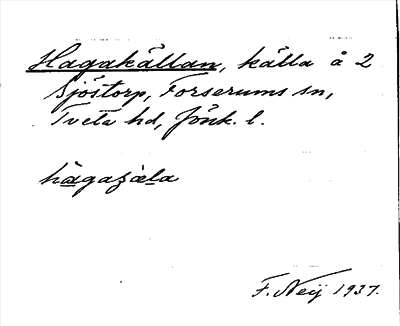 Hagakällan, källa å 2
Sjöstorp, Forserums sn,
Tveta hd, Jönk. l.
F. Neij 1937.